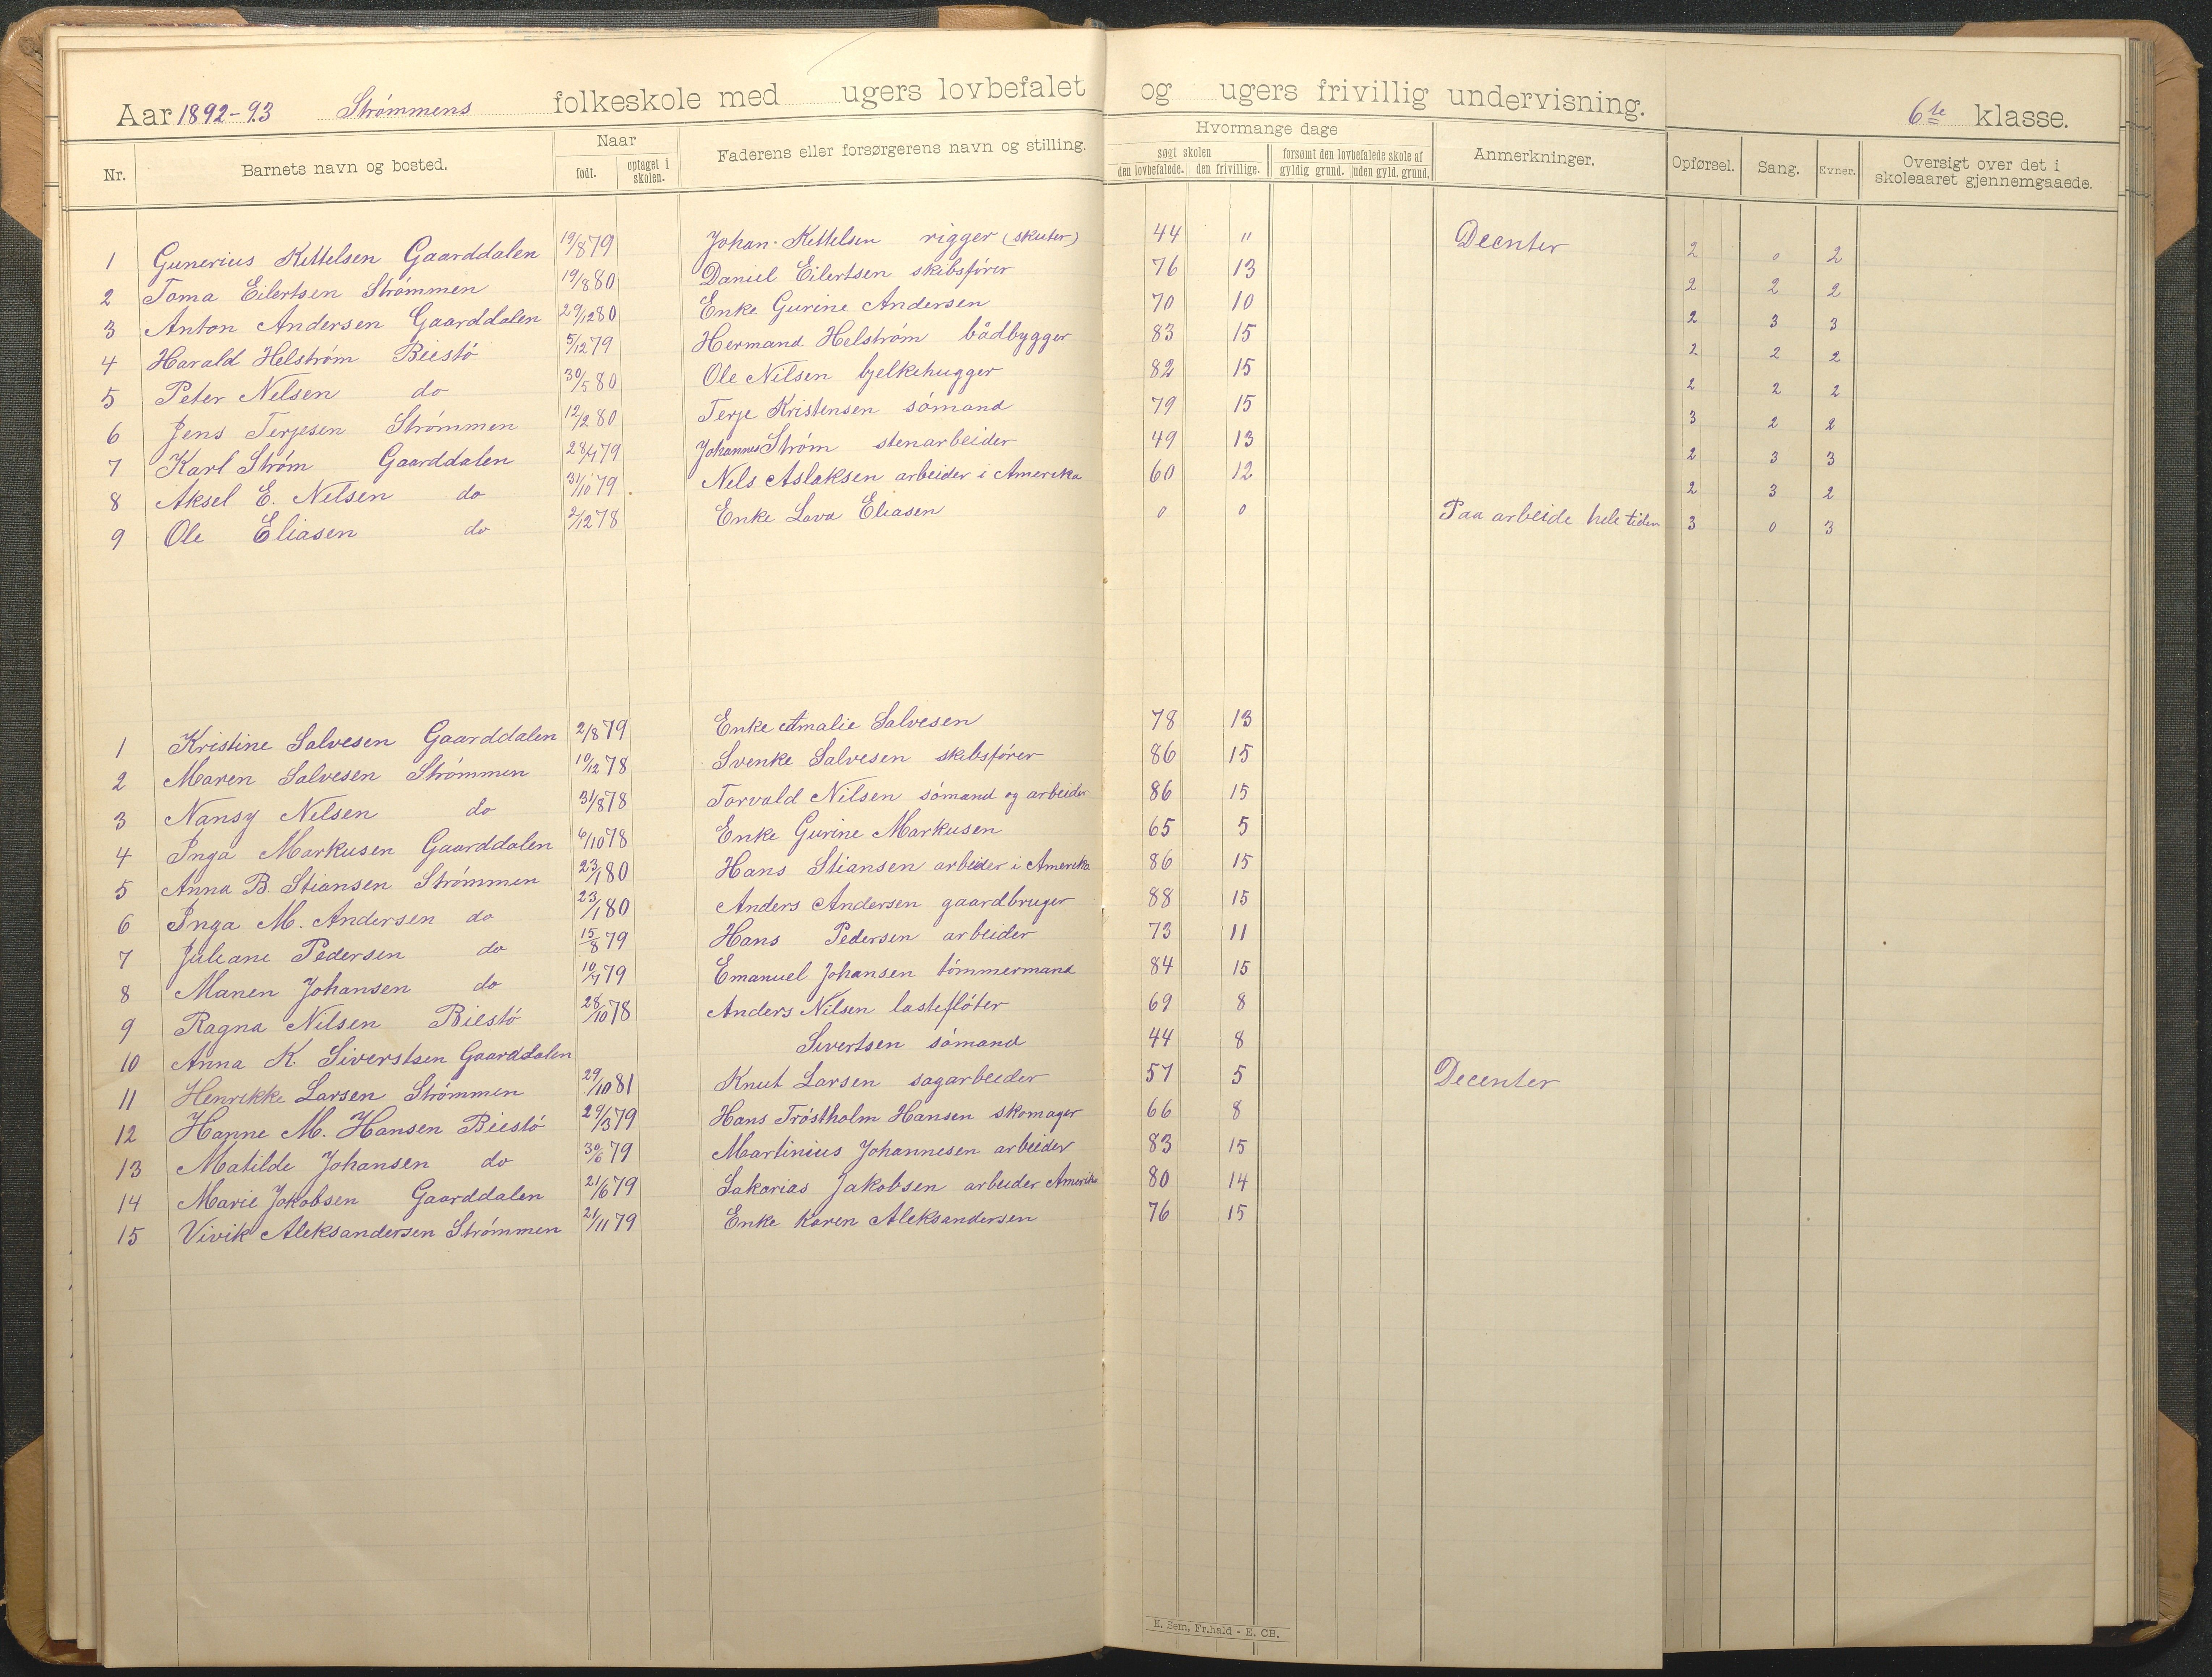 Aar 1892-93 Strømmens folkeskole med ugers lovbefalet og ugers frivillig undervisning. 6te klasse.
Nr. Barnets navn og bosted. Naar født. optaget i skolen. Faderens eller forsørgerens navn og stilling. Hvormange dage søgt skolen den lovbefalede. den frivillige. forsømt den lovbefalede skole af gyldig grund. uden gyld. grund. Anmerkninger. Opførsel. Sang. Evner. Oversigt over det i skoleaaret gjennemgaaede.
1 Gunerius Kittelsen Gaarddalen 19/8 79 Johan Kettelsen rigger (skuter) 44 " Decnter 2 0 2
2 Toma Eilertsen Strømmen 19/8 80 Daniel Eilertsen skibsfører 76 13 2 2 2
3 Anton Andersen Gaarddalen 29/12 80 Enke Gurine Andersen 70 10 2 3 3
4 Harald Helstrøm Biestø 5/12 79 Hermand Helstrøm bådbygger 83 15 2 2 2
5 Peter Nelsen do 30/5 80 Ole Nilsen bjelkehugger 82 15 2 2 2
6 Jens Terjesen Strømmen 12/2 80 Terje Kristensen sømand 79 15 3 2 2
7 Karl Strøm Gaarddalen 28/7 79 Johannes Strøm stenarbeider 49 13 2 3 3
8 Aksel E. Nelsen do 31/10 79 Nels Aslaksen arbeider i Amerika 60 12 2 3 2
9 Ole Eliasen do 2/12 78 Enke Lova Eliasen 0 0 Paa arbeide hele tiden 3 0 3
1 Kristine Salvesen Gaarddalen 2/8 79 Enke Amalie Salvesen 78 13
2 Maren Salvesen Strømmen 10/12 78 Svenke Salvesen skibsfører 86 15
3 Nansy Nelsen do 31/8 78 Torvald Nilsen sømand og arbeider 86 15
4 Inga Markusen Gaarddalen 6/10 78 Enke Gurine Markusen 65 5
5 Anna B. Stiansen Strømmen 23/1 80 Hans Stiansen arbeider i Amerika 86 15
6 Inga M. Andersen do 23/1 80 Anders Andersen gaardbruger 88 15
7 Juliane Pedersen do 15/8 79 Hans Pedersen arbeider 73 11
8 Maren Johansen do 10/7 79 Emanuel Johansen tømmermand 84 15
9 Ragna Nilsen Biestø 28/10 78 Anders Nilsen lastefløter 69 8
10 Anna K. Siverstsen Gaarddalen Sivertsen sømand 44 8
11 Henrikke Larsen Strømmen 29/10 81 Knut Larsen sagarbeider 57 5 Decenter
12 Hanne M. Hansen Biestø 29/3 79 Hans Trøstholm Hansen skomager 66 8
13 Matilde Johansen do 30/6 79 Martinius Johannesen arbeider 83 15
14 Marie Jakobsen Gaarddalen 21/6 79 Sakarias Jakobsen arbeider Amerika 80 14
15 Vivik Aleksandersen Strømmen 21/11 79 Enke Karen Aleksandersen 76 15
E. Sem, Fr.hald - E. CB.